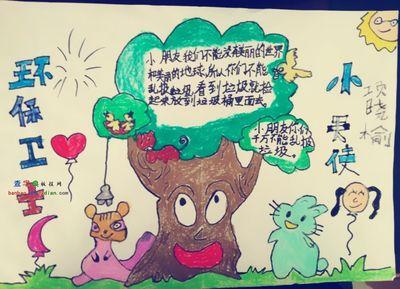 环保卫士
小天使
项晓榆
小朋友我们不能没有美丽的世界
和美丽的地球,所以你们不能
乱扔垃圾,看到垃圾就捡
起来放到垃圾桶里面去。
小朋友你们
千万不能乱扔
垃圾。